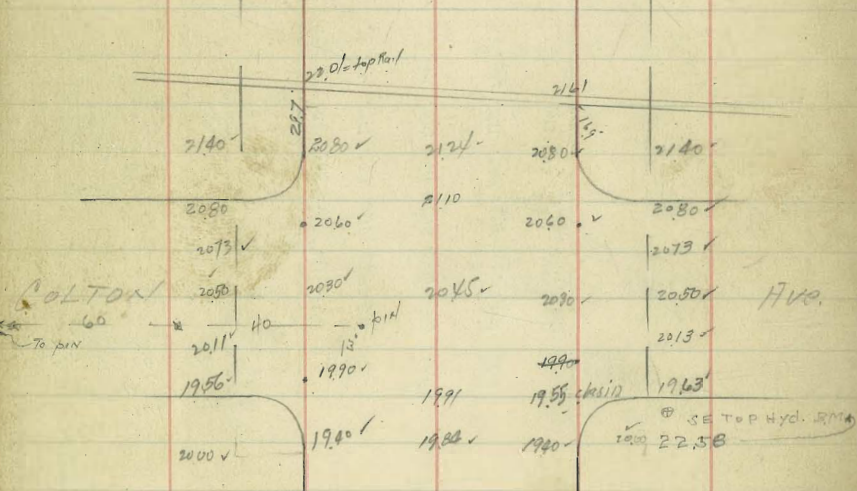 22.01 = top Rail
2161
29.7
2140 ✓ 2080 ✓ 2124 - 2080 ✓ 2140 ✓
2080 2110 2080 ✓
2060 ✓ 2060 ✓
2073 ✓ 2073 ✓
COLTON 2050 ✓ 2030 ✓ 2045 ✓ 2050 ✓ Ave.
60 40 PIN
To PIN 2011 ✓ 13 2013 ✓
1990 ✓ 1990
1956 ✓ 1991 19.55 basin 1963 ✓
SE TOP Hyd. BM
2000 ✓ 1940 ✓ 1984 ✓ 1940 ✓ 22.58